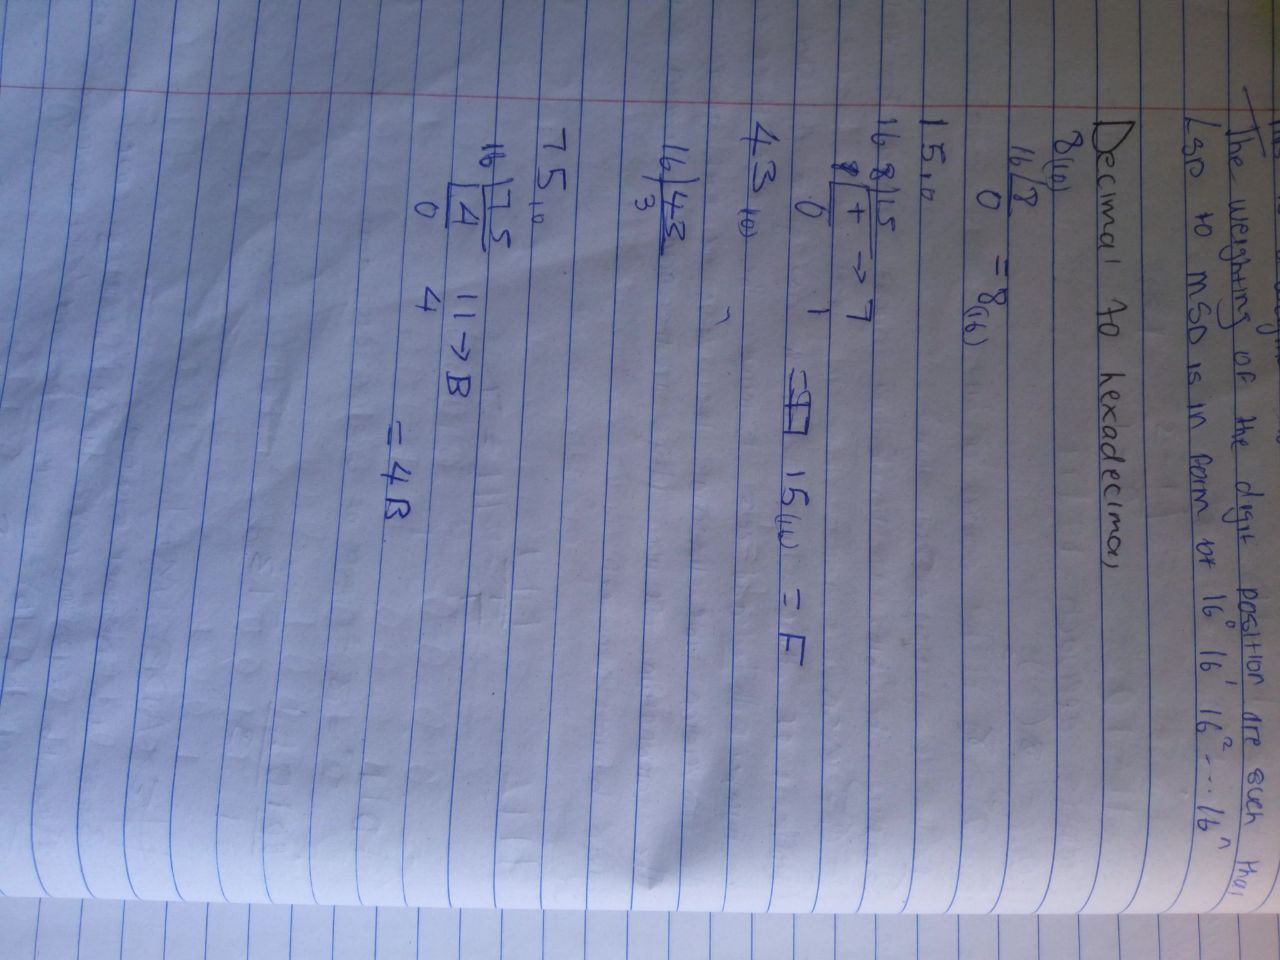 The weighting of the digit position are such that
LSD to MSD is in form of 16⁰ 16¹ 16² --- 16ⁿ
Decimal to hexadecimal
8(10)
16 8
0 = 8(16)
15₁₀
16 8 15
+ → 7
0 1
15(16) = F
43(10)
16 43
3
75₁₀
16 75
4 11 → B
0 4
= 4B